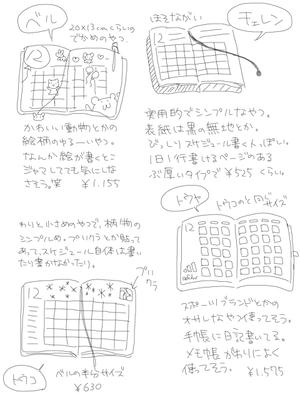 ベル
20×13cmくらいの
でかめのやつ
12
かわいい動物とかの
絵柄のゆる〜いやつ。
なんか絵が書くとこ
ジャマしてても気にしな
さそう。笑 ¥1.155
ほそながい
チェレン
12
実用的でシンプルなやつ。
表紙は黒の無地とか。
びっしりスケジュール書くんっぽい。
1日1行書けるページのある
ぶ厚いタイプで ¥525 くらい。
わりと小さめのやつで、柄物の
シンプルめ。プリクラとか貼って
あって、スケジュール自体は書い
たり書かなかったり。
プリ
クラ
12
トウコ
ベルの半分サイズ
¥630
トウヤ
トウコのと同じサイズ
12
スポーツブランドとかの
オサレなやつ使ってそう。
手帳に日記書いてる。
メモ帳がわりによく
使ってそう。 ¥1.575